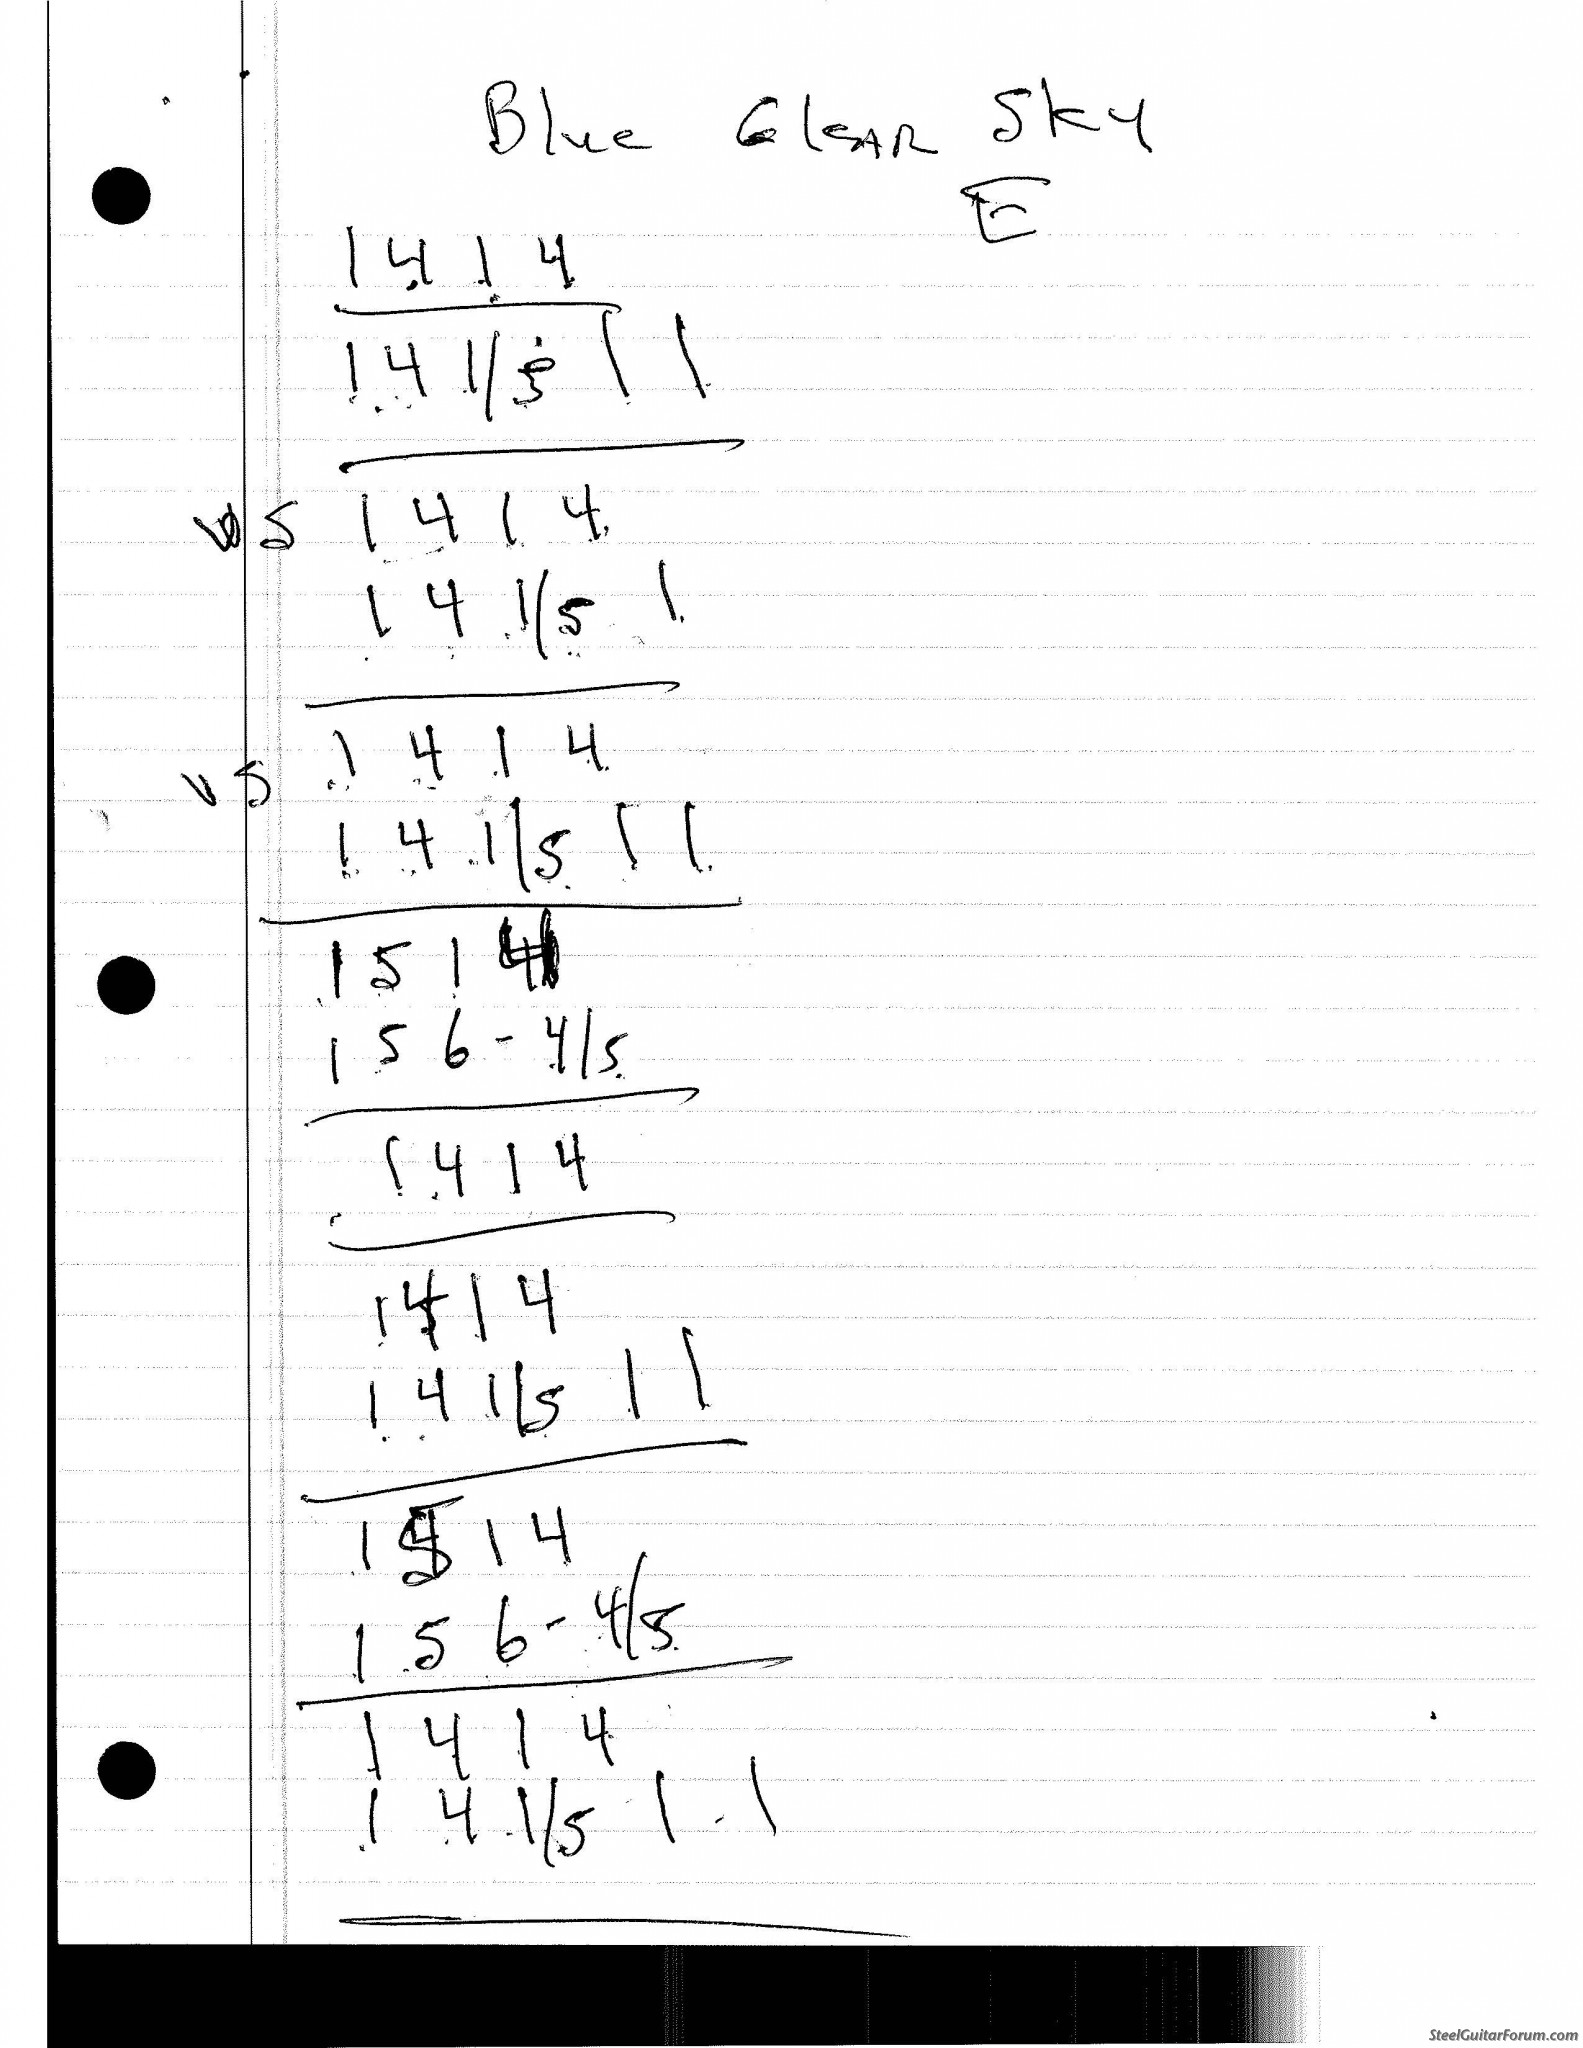 Blue Clear Sky
E
1 4 1 4
1 4 1/5 1 1
vs 1 4 1 4
1 4 1/5 1
vs 1 4 1 4
1 4 1/5 1 1
1 5 1 4
1 5 6- 4/5
1 4 1 4
1 4 1 4
1 4 1/5 1 1
1 5 1 4
1 5 6- 4/5
1 4 1 4
1 4 1/5 1 1
SteelGuitarForum.com